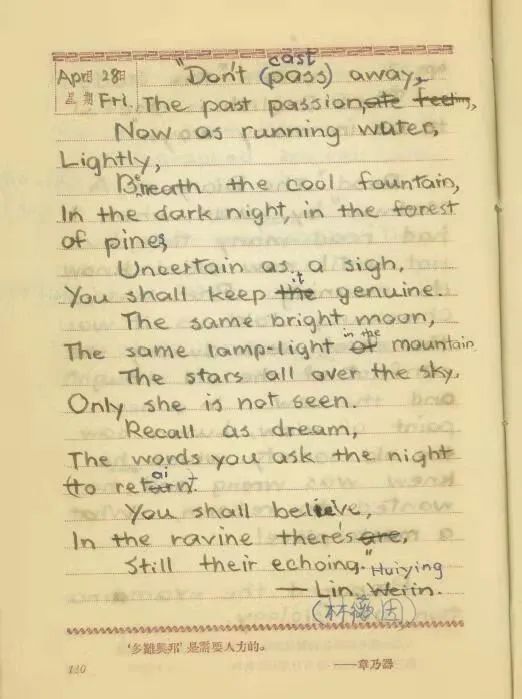 cast
April 28日 "Don't (pass) away,
星期 Fri. The past passion,ate feeling,
Now as running water,
Lightly,
Beneath the cool fountain,
In the dark night, in the forest
of pines,
Uncertain as a sigh,
it
You shall keep the genuine.
The same bright moon,
in the
The same lamp-light of mountain
The stars all over the sky.
Only she is not seen.
Recall as dream,
The words you ask the night
ai
(to return.
You shall believe,
In the ravine there's are,
Still their echoing."
Huiying
— Lin Weiin.
(林徽因)
'多難興邦' 是需要人力的。
120 ——章乃器